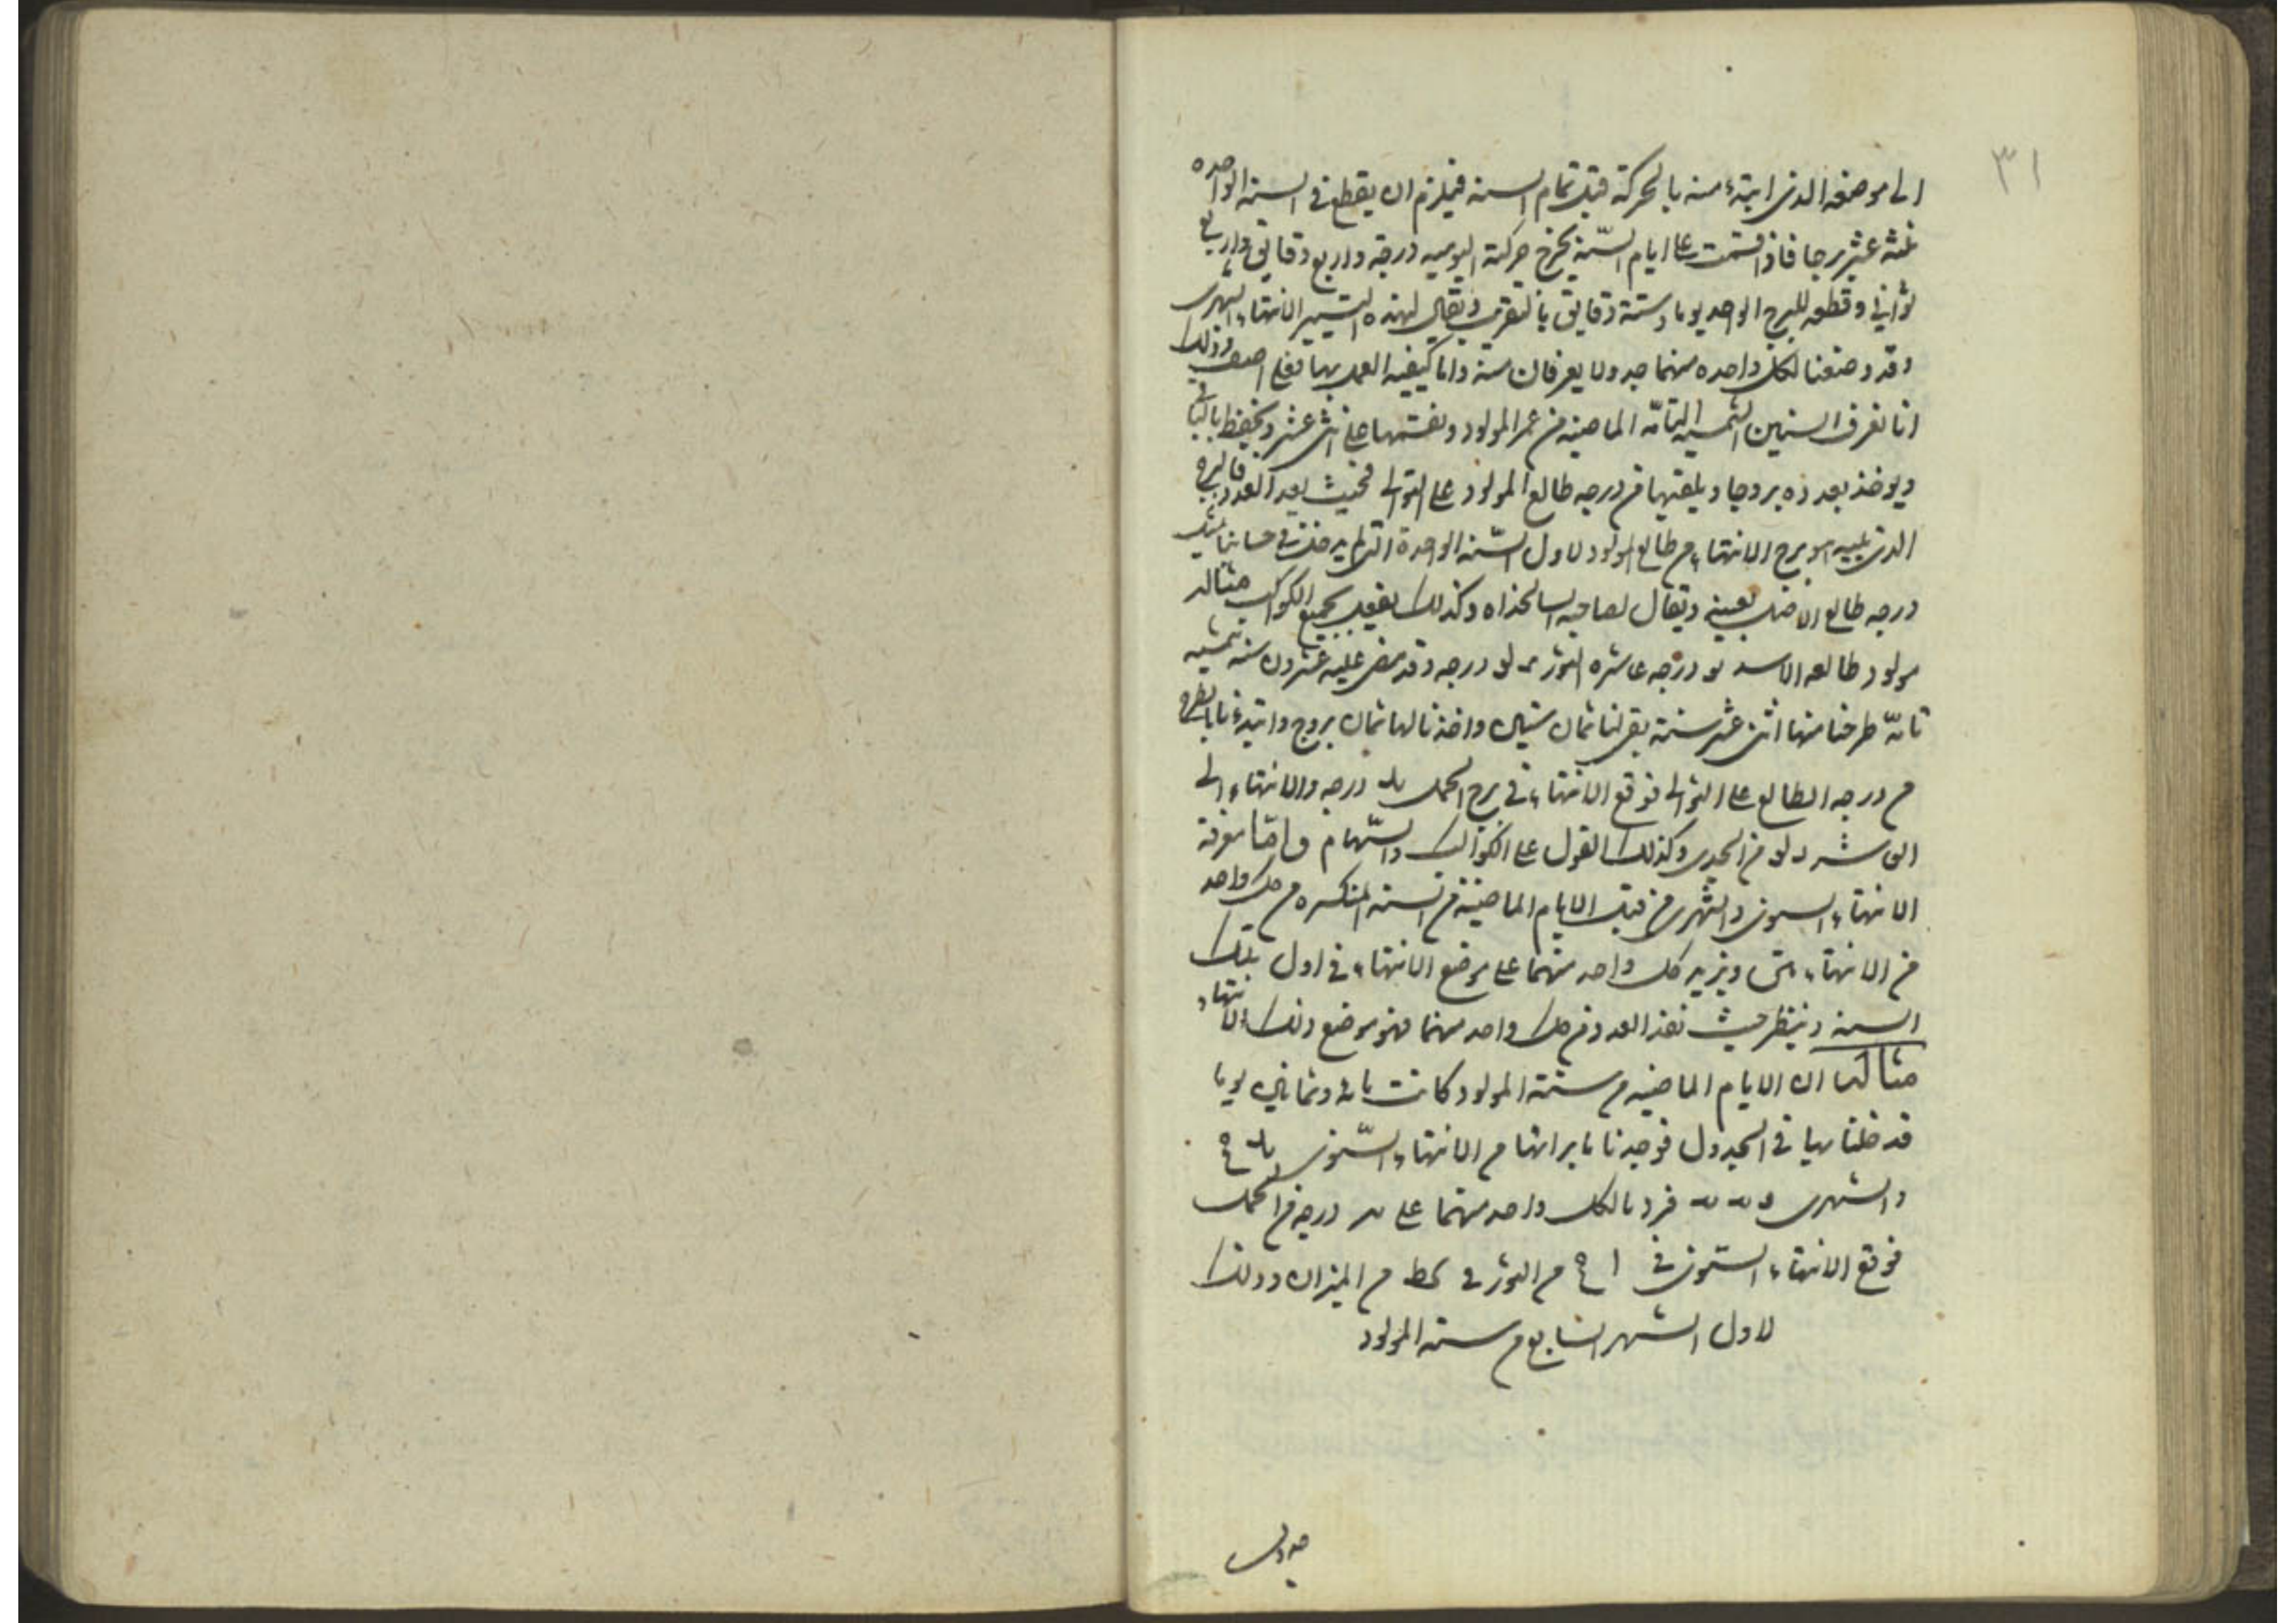 ٣١
الى موضعه الذى ابتدء منه بالحركة قبل تمام السنه فيلزم ان يقطع فى السنه الواحده
ثلثه عشر برجا فاذا قسمت على ايام السّنة يخرج حركته اليوميه درجه واربع دقايق واربع
ثوانى وقطعه للبرج الواحد يوما وستة دقايق بالتقريب ويقال لهذه التسيير الانتهاء الشهرى
وقد وضعنا لكل واحده منهما جدولا يعرفان منه واما كيفيه العمل بها فعلى اصف وذلك
انا نعرف السنين الشمسيه التامّه الماضيه من عمر المولود ونقسمها على اثنى عشر ونحفظ بالباقى
ويوخذ بعدده بروجا ويلقيها من درجه طالع المولود على التوالى فحيث نفد العدد فالبرج
الذى يليه هو برج الانتهاء من طالع المولود لاول السّنه الواحدة التى لم يدخل فى حسابنا مثل
درجه طالع الاصل بعينه ويقال لصاحبه السالخذاه وكذلك يفعل بجميع الكواكب مثاله
مولود طالعه الاسد يو درجه عاشره الثور يو درجه وقد مضى عليه عشرون سنه شمسيه
تامّه طرحنا منها اثنى عشر سنة بقى لنا ثمان سنين واخذنا لها ثمان بروج وابتدءنا بالطرح
من درجه الطالع على التوالى فوقع الانتهاء فى برج الحمل درجه والانتهاء الى
العاشر من الجدى وكذلك القول على الكواكب والسّهام واما معرفة
الانتهاء السنوى والشهرى من قبل الايام الماضية من السنه المنكسره من كل واحد
من الانتهاء ويزيد كل واحد منهما على موضع الانتهاء فى اول تلك
السنه وينظر حيث نفد العدد من كل واحد منهما فهو موضع ذلك الانتهاء
مثالها ان الايام الماضيه من سنة المولود كانت مائه وثمانين يوما
فدخلنا بها فى الجدول فوجدنا ما بازائها من الانتهاء السّنوى
والشهرى فزدنا لكل واحد منهما على درجه من الحمل
فوقع الانتهاء السنوى فى ا من الثور فى كط من الميزان وذلك
لاول الشهر السابع من سنه المولود
جدول